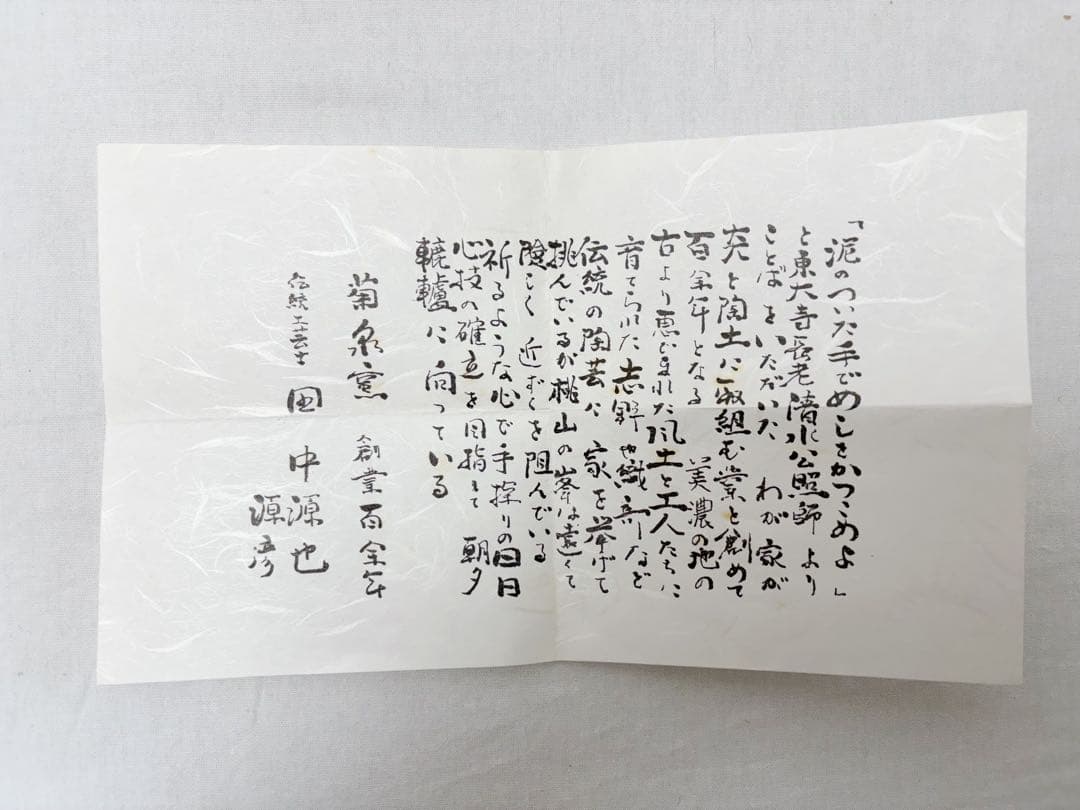 「泥のついた手でめしをかつこめよ」
と東大寺長老清水公照師より
ことばをいただいた わが家が
炎と陶土に取組む業を創めて
百余年となる 美濃の地の
古より恵まれた風土と工人たちに
育てられた志野や織部など
伝統の陶芸に家を挙げて
挑んでいるが桃山の峯は遠くて
険しく 近ずくを阻んでいる
祈るような心で手探りの日日
心技の確立を目指して 朝夕
轆轤に向っている
菊泉窯 創業百余年
伝統工芸士 田中源也
源彦